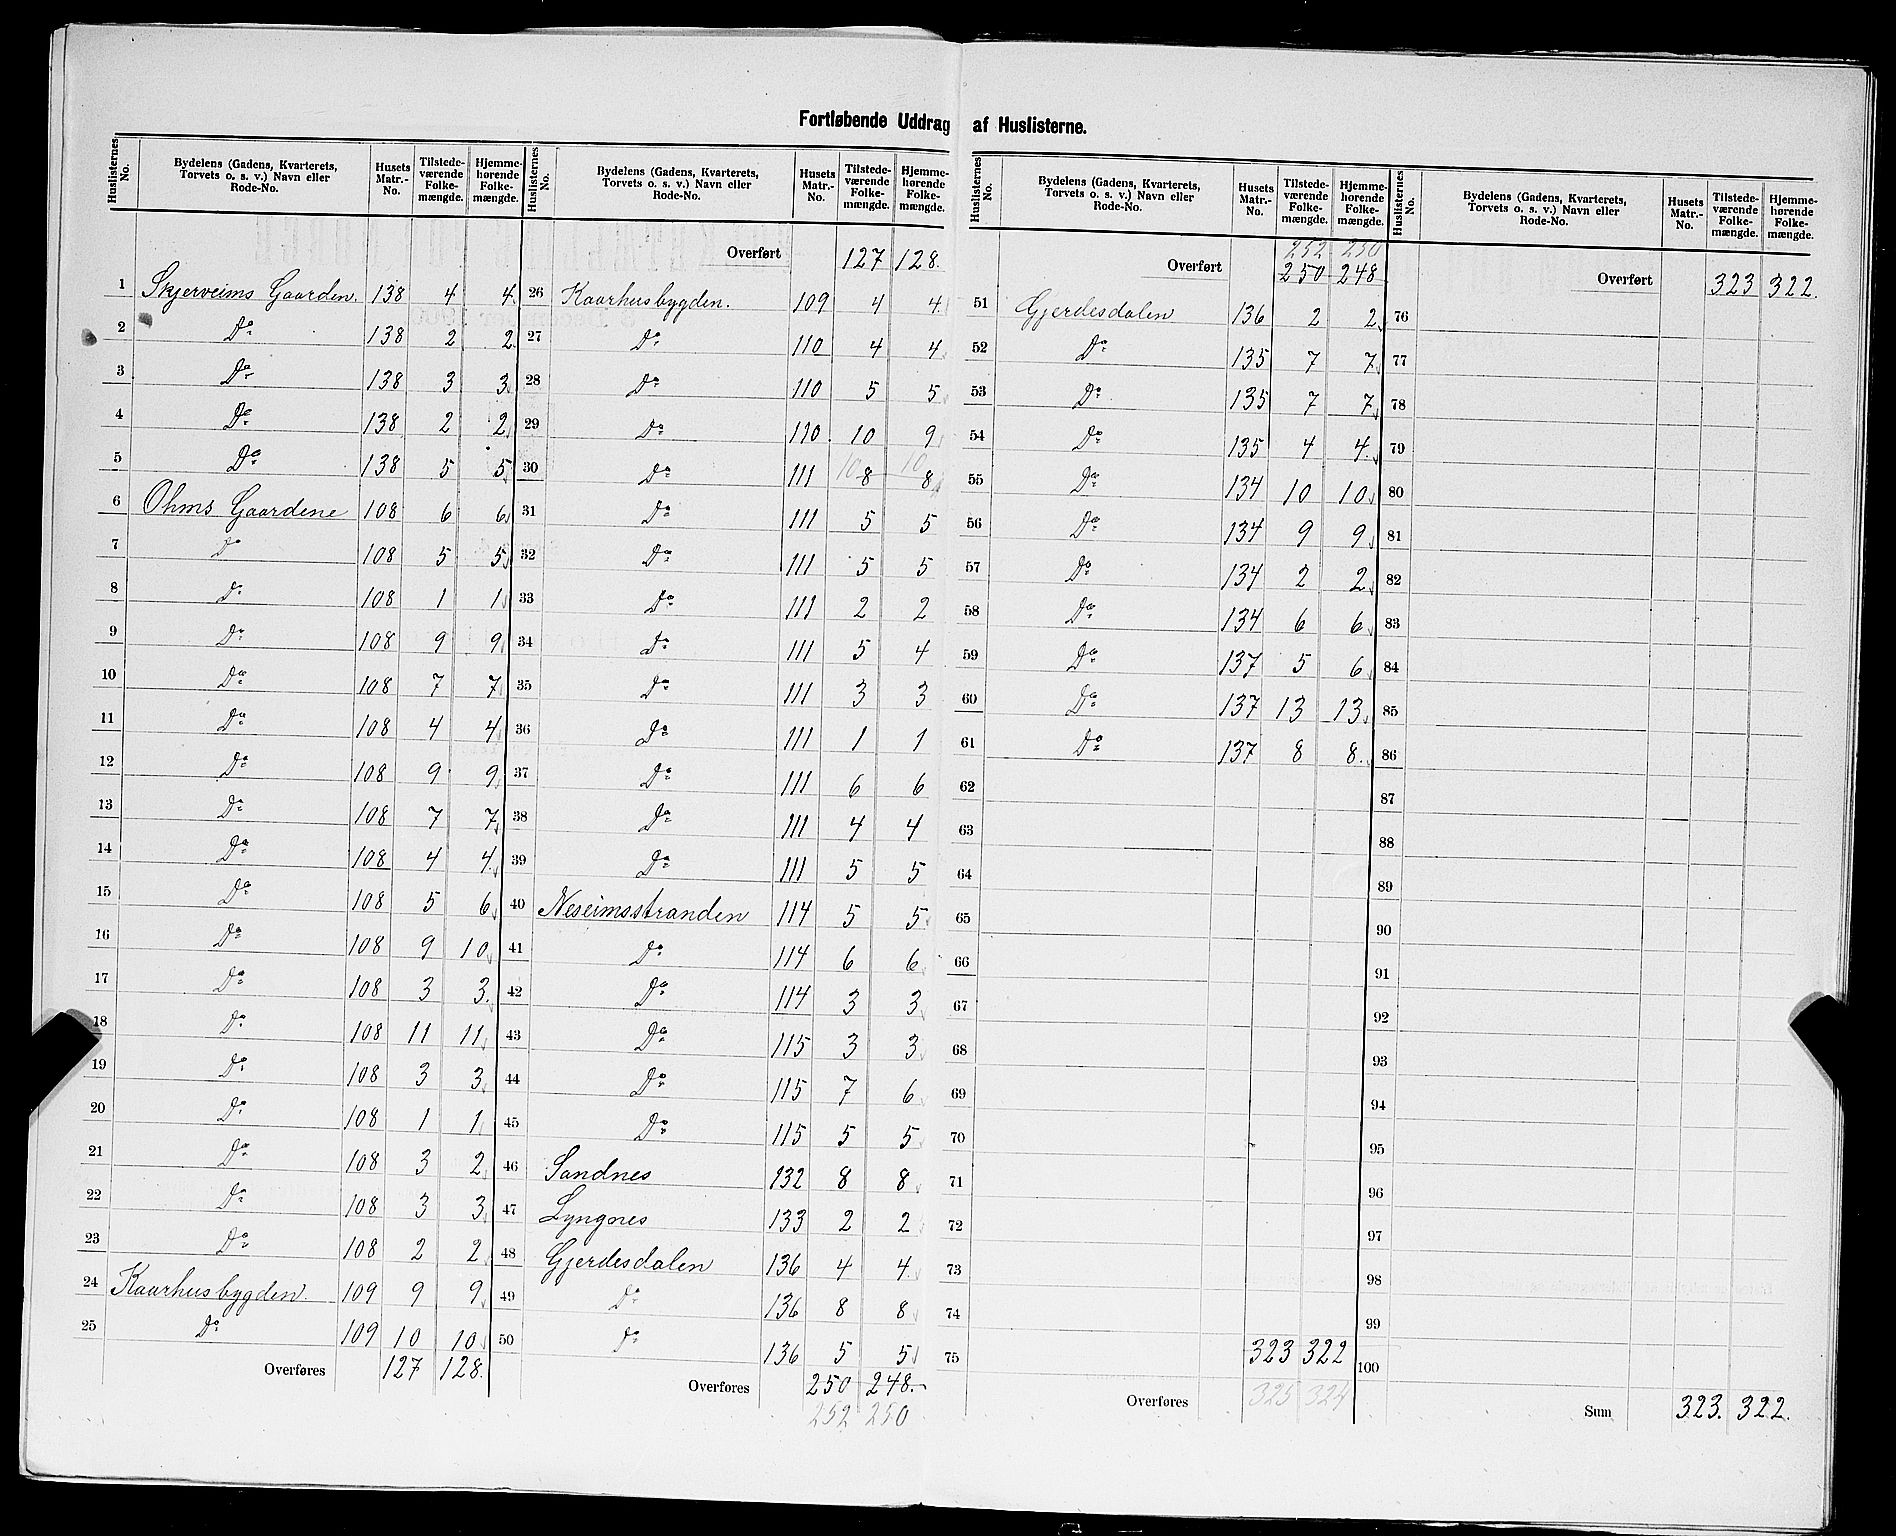 Fortløbende Uddrag af Huslisterne.
Huslisternes No. | Bydelens (Gadens, Kvarterets, Torvets o. s. v.) Navn eller Rode-No. | Husets Matr.-No. | Tilstedeværende Folkemængde. | Hjemmehørende Folkemængde.
1 Skjerveims Gaarden. 138 4 4
2 Do 138 2 2
3 Do 138 3 3
4 Do 138 2 2
5 Do 138 5 5
6 Ohms Gaardene 108 6 6
7 Do 108 5 5
8 Do 108 1 1
9 Do 108 9 9
10 Do 108 7 7
11 Do 108 4 4
12 Do 108 9 9
13 Do 108 7 7
14 Do 108 4 4
15 Do 108 5 6
16 Do 108 9 10
17 Do 108 3 3
18 Do 108 11 11
19 Do 108 3 3
20 Do 108 1 1
21 Do 108 3 2
22 Do 108 3 3
23 Do 108 2 2
24 Kaarhusbygden. 109 9 9
25 Do 109 10 10
Overføres 127 128.
Huslisternes No. | Bydelens (Gadens, Kvarterets, Torvets o. s. v.) Navn eller Rode-No. | Husets Matr.-No. | Tilstedeværende Folkemængde. | Hjemmehørende Folkemængde.
Overført 127 128.
26 Kaarhusbygden. 109 4 4
27 Do 110 4 4
28 Do 110 5 5
29 Do 110. 10 9
30 Do 111 10 8 10 8
31 Do 111 5 5
32 Do 111 5 5
33 Do 111 2 2
34 Do 111 5 4
35 Do 111 3 3
36 Do 111 1 1
37 Do 111 6 6
38 Do 111 4 4
39 Do 111 5 5
40 Neseimsstranden 114 5 5
41 Do 114 6 6
42 Do 114 3 3
43 Do 115 3 3
44 Do 115 7 6
45 Do 115 5 5
46 Sandnes 132 8 8
47 Lyngnes 133 2 2
48 Gjerdesdalen 136 4 4
49 Do 136 8 8
50 Do 136 5 5
Overføres 250 248.
252 250
Huslisternes No. | Bydelens (Gadens, Kvarterets, Torvets o. s. v.) Navn eller Rode-No. | Husets Matr.-No. | Tilstedeværende Folkemængde. | Hjemmehørende Folkemængde.
252 250
Overført 250 248
51 Gjerdesdalen 136 2 2
52 Do 135 7 7
53 Do 135 7 7
54 Do 135 4 4
55 Do 134 10 10
56 Do 134 9 9
57 Do 134 2 2
58 Do 134 6 6
59 Do 137 5 6
60 Do 137 13 13
61 Do 137 8 8
62
63
64
65
66
67
68
69
70
71
72
73
74
75
323 322
Overføres 325 324
Huslisternes No. | Bydelens (Gadens, Kvarterets, Torvets o. s. v.) Navn eller Rode-No. | Husets Matr.-No. | Tilstedeværende Folkemængde. | Hjemmehørende Folkemængde.
Overført 323 322.
76
77
78
79
80
81
82
83
84
85
86
87
88
89
90
91
92
93
94
95
96
97
98
99
100
Sum 323. 322.